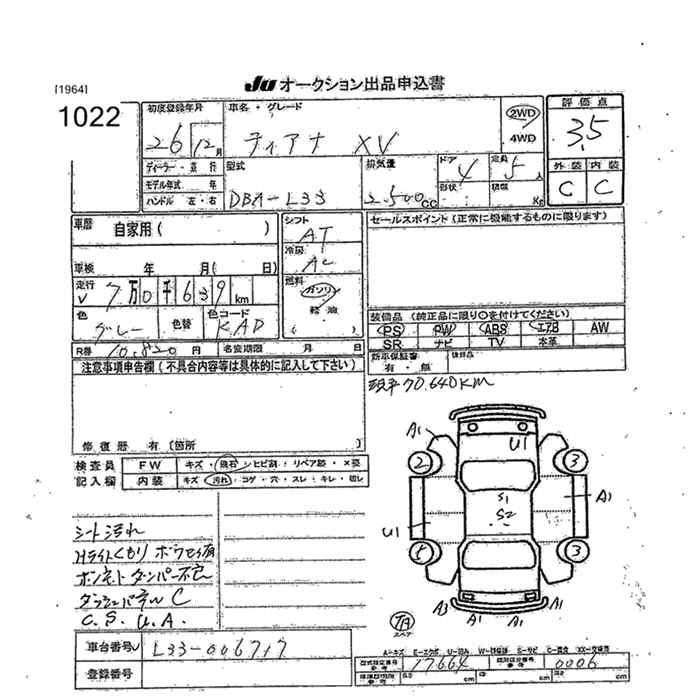 [1964]
JU オークション出品申込書
1022
初度登録年月
26 12月
車名・グレード
ティアナ XV
2WD
4WD
評価点
3.5
ディーラー・並行
モデル年式 年
ハンドル 左・右
型式
DBA-L33
排気量
2,500cc
ドア
4
形状
定員
5人
積載
Kg
外装 内装
C C
車歴
自家用( )
シフト
AT
セールスポイント(正常に機能するものに限ります)
車検 年 月( 日)
冷房
AC
走行
7万0千639km
燃料
ガソリン
軽油
( )
色
グレー
色替
色コード
KAD
装備品(純正品に限り○を付けてください)
PS PW ABS エアB AW
SR ナビ TV 本革
R券 10,820円 名変期限 月 日
新車保証書
有・無
後日品
注意事項申告欄(不具合内容等は具体的に記入して下さい)
現車70,640KM
修復歴 有【箇所 】
検査員
記入欄
FW キズ・飛石・シヒビ割・リペア跡・×要
内装 キズ・汚れ・コゲ・穴・スレ・キレ・切レ
A1
U1
2
3
A1
S1
S2
U1
5
3
A3
A1
A1
スペア
シート汚れ
Hライトくもり
ボンネットダンパー不良
ダッシュパネルC
C.S.U.A.
車台番号 L33-006717
登録番号
A-キズ E-エクボ U-凹み
型式指定番号 17664 類別区分番号 0006
cm cm cm